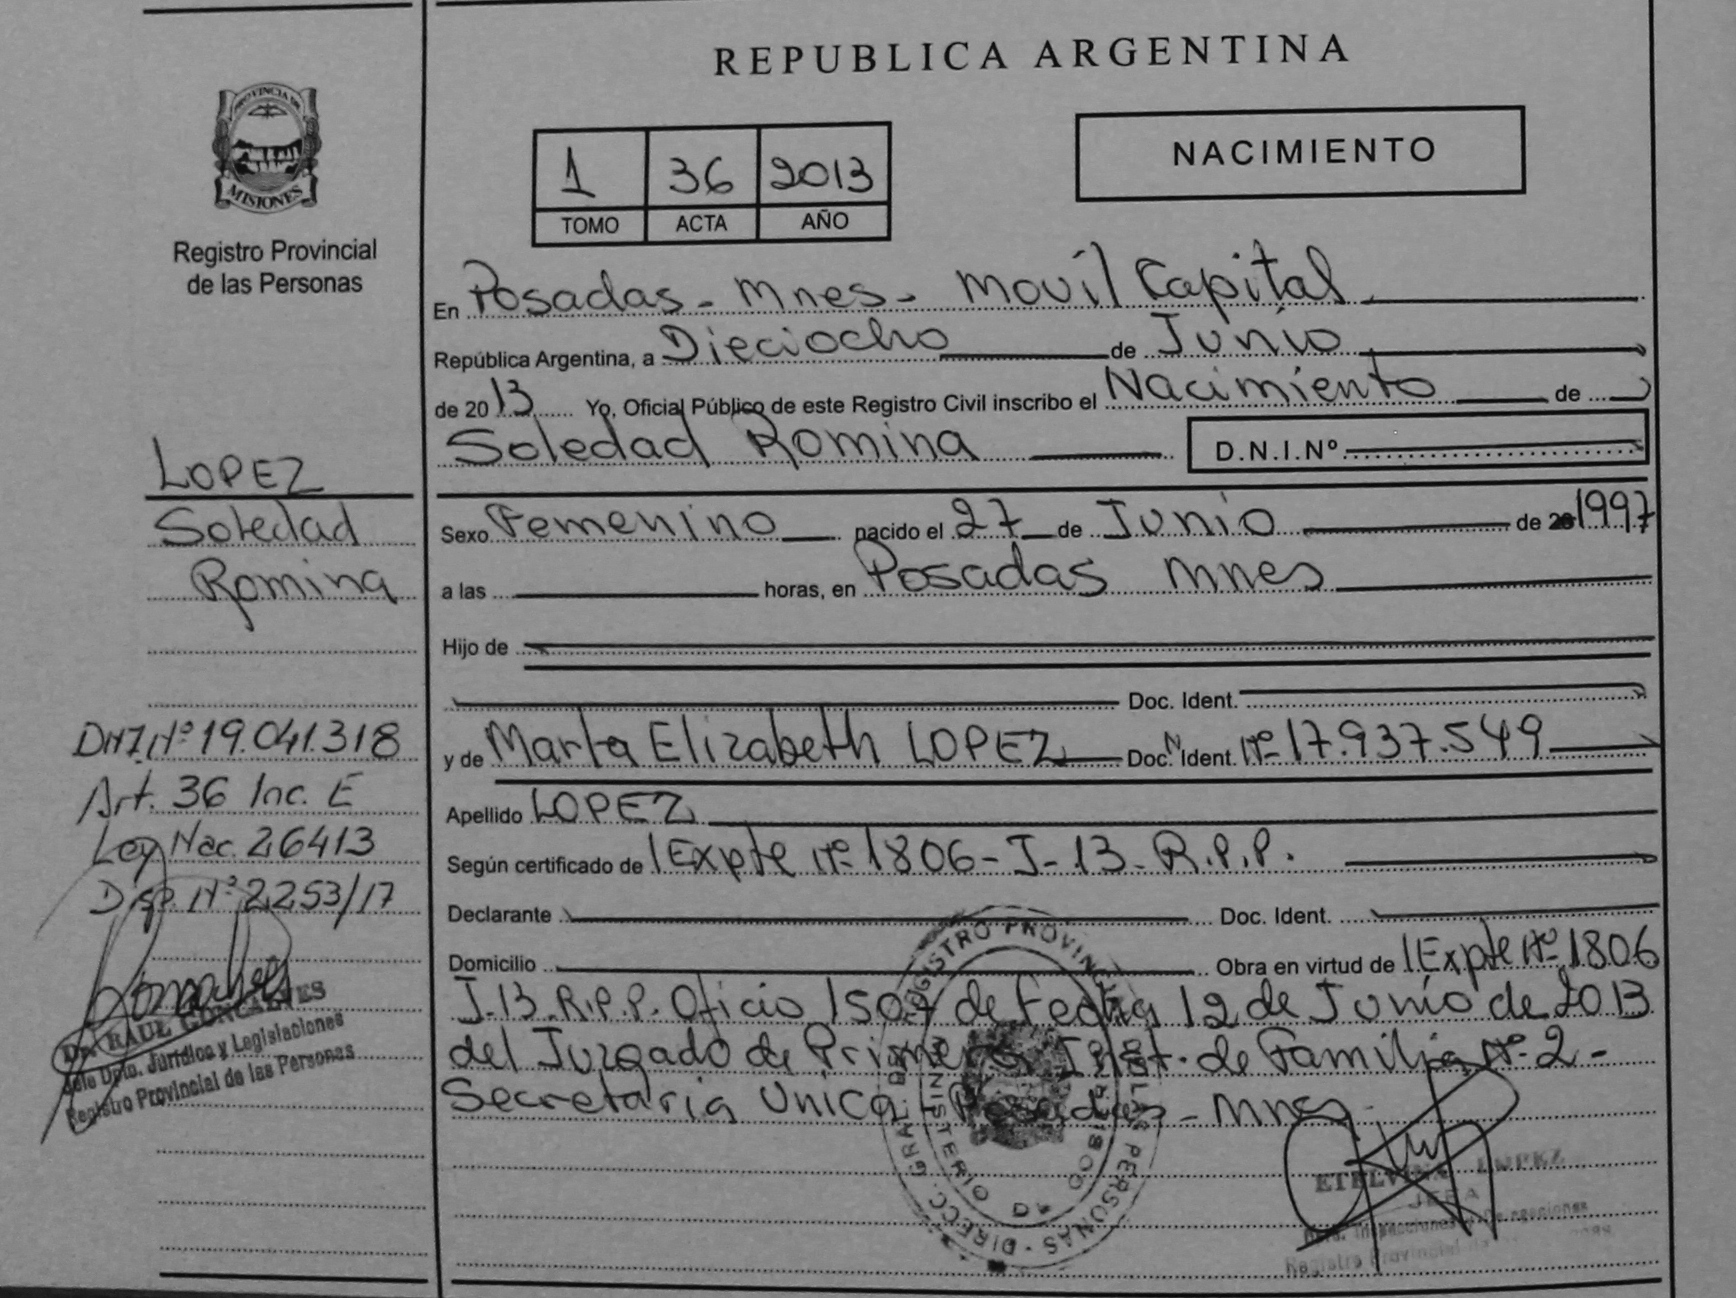 REPUBLICA ARGENTINA
PROVINCIA DE
MISIONES
Registro Provincial
de las Personas
1 36 2013
TOMO ACTA AÑO
NACIMIENTO
En Posadas - Mnes - Movil Capital
República Argentina, a Dieciocho de Junio
de 2013 Yo, Oficial Público de este Registro Civil inscribo el Nacimiento de
Soledad Romina D.N.I.Nº
LOPEZ
Soledad
Romina
Sexo Femenino nacido el 27 de Junio de 20 1997
a las horas, en Posadas Mnes
Hijo de
Doc. Ident.
y de Marta Elizabeth LOPEZ Doc. N Ident. Nº 17.937.549
Apellido LOPEZ
Según certificado de Expte Nº 1806-J-13-R.P.P.
Declarante Doc. Ident.
Domicilio Obra en virtud de Expte Nº 1806
J-13-R.P.P. Oficio 1507 de Fecha 12 de Junio de 2013
del Juzgado de Primera Inst. de Familia Nº 2 -
Secretaria Unica - Posadas - Mnes
DNI Nº 19.041.318
Art. 36 Inc. E
Ley Nac. 26413
Disp. Nº 2253/17
Dr. RAUL GONCALVES
Jefe Dpto. Jurídico y Legislaciones
Registro Provincial de las Personas
DIRECC. GRAL. REGISTRO PROVINCIAL DE LAS PERSONAS
MINISTERIO DE GOBIERNO
ETELVINA LOPEZ
JEFA
Registro Provincial de las Personas